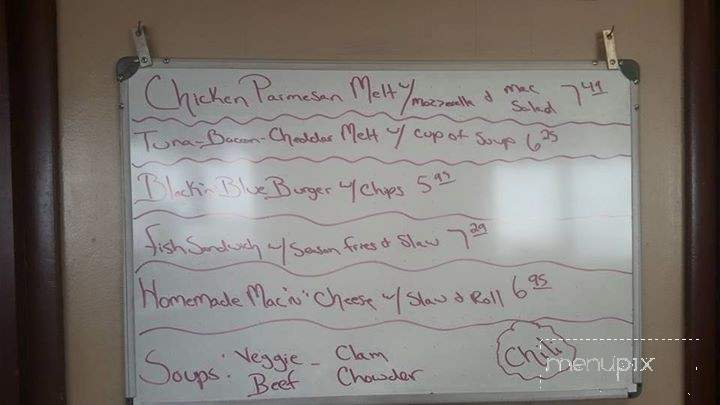 Chicken Parmesan Melt w/ mozzerella & mac salad 7 49
Tuna-Bacon-Cheddar Melt w/ cup of soup 6 25
Black'n Blue Burger w/ chips 5 99
Fish Sandwich w/ season fries & slaw 7 29
Homemade Mac'n'Cheese w/ slaw & Roll 6 95
Soups: Veggie - Clam
Beef Chowder
Chili
menupix